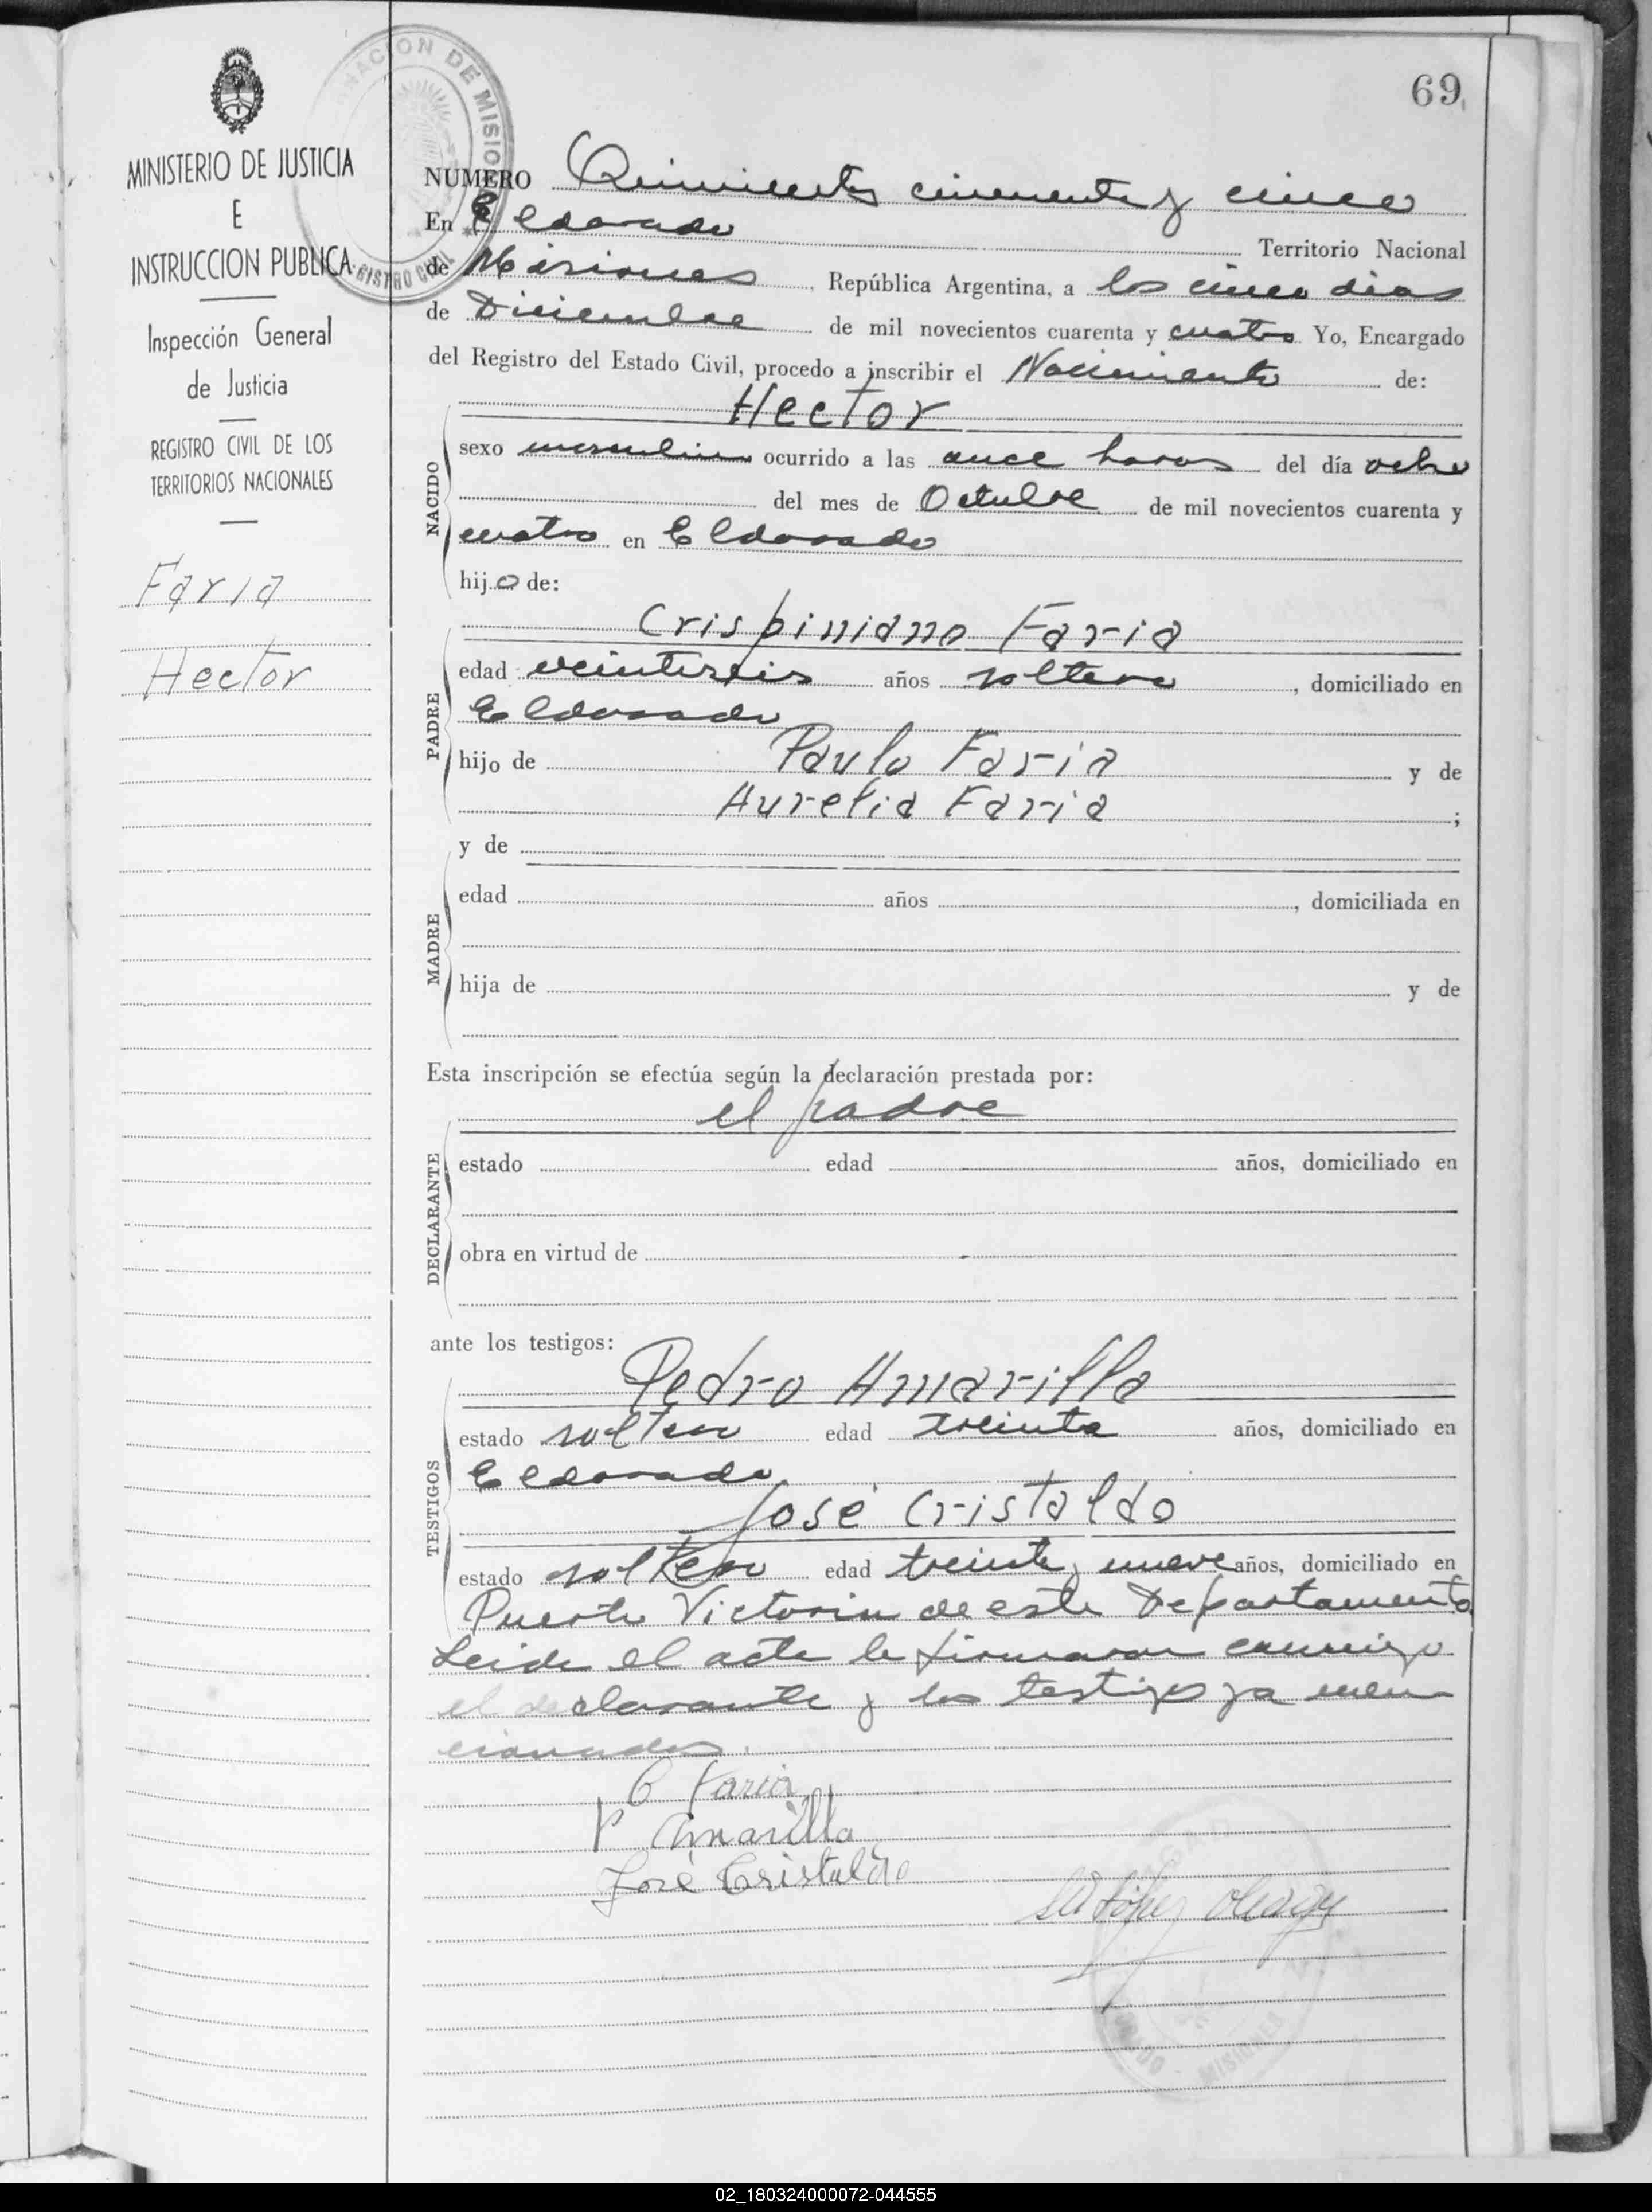 69
MINISTERIO DE JUSTICIA
E
INSTRUCCION PUBLICA
Inspección General
de Justicia
REGISTRO CIVIL DE LOS
TERRITORIOS NACIONALES
Faria
Hector
NUMERO Quinientos cincuenta y cinco
En Eldorado Territorio Nacional
de Misiones, República Argentina, a los cinco dias
de Diciembre de mil novecientos cuarenta y cuatro Yo, Encargado
del Registro del Estado Civil, procedo a inscribir el Nacimiento de:
Hector
NACIDO
sexo masculino ocurrido a las once horas del día ocho
del mes de Octubre de mil novecientos cuarenta y
cuatro en Eldorado
hijo de:
PADRE
Crispiniano Faria
edad veintiseis años soltero, domiciliado en
Eldorado
hijo de Paulo Faria y de
Aurelia Faria;
MADRE
y de
edad años, domiciliada en
hija de y de
Esta inscripción se efectúa según la declaración prestada por:
el padre
DECLARANTE
estado edad años, domiciliado en
obra en virtud de
ante los testigos:
TESTIGOS
Pedro Amarilla
estado soltero edad treinta años, domiciliado en
Eldorado
José Cristaldo
estado soltero edad treinta y nueve años, domiciliado en
Puerto Victoria de este Departamento
Leida el acta la firmaron conmigo
el declarante y los testigos ya men
cionados.
C Faria
P Amarilla
José Cristaldo
02_180324000072-044555